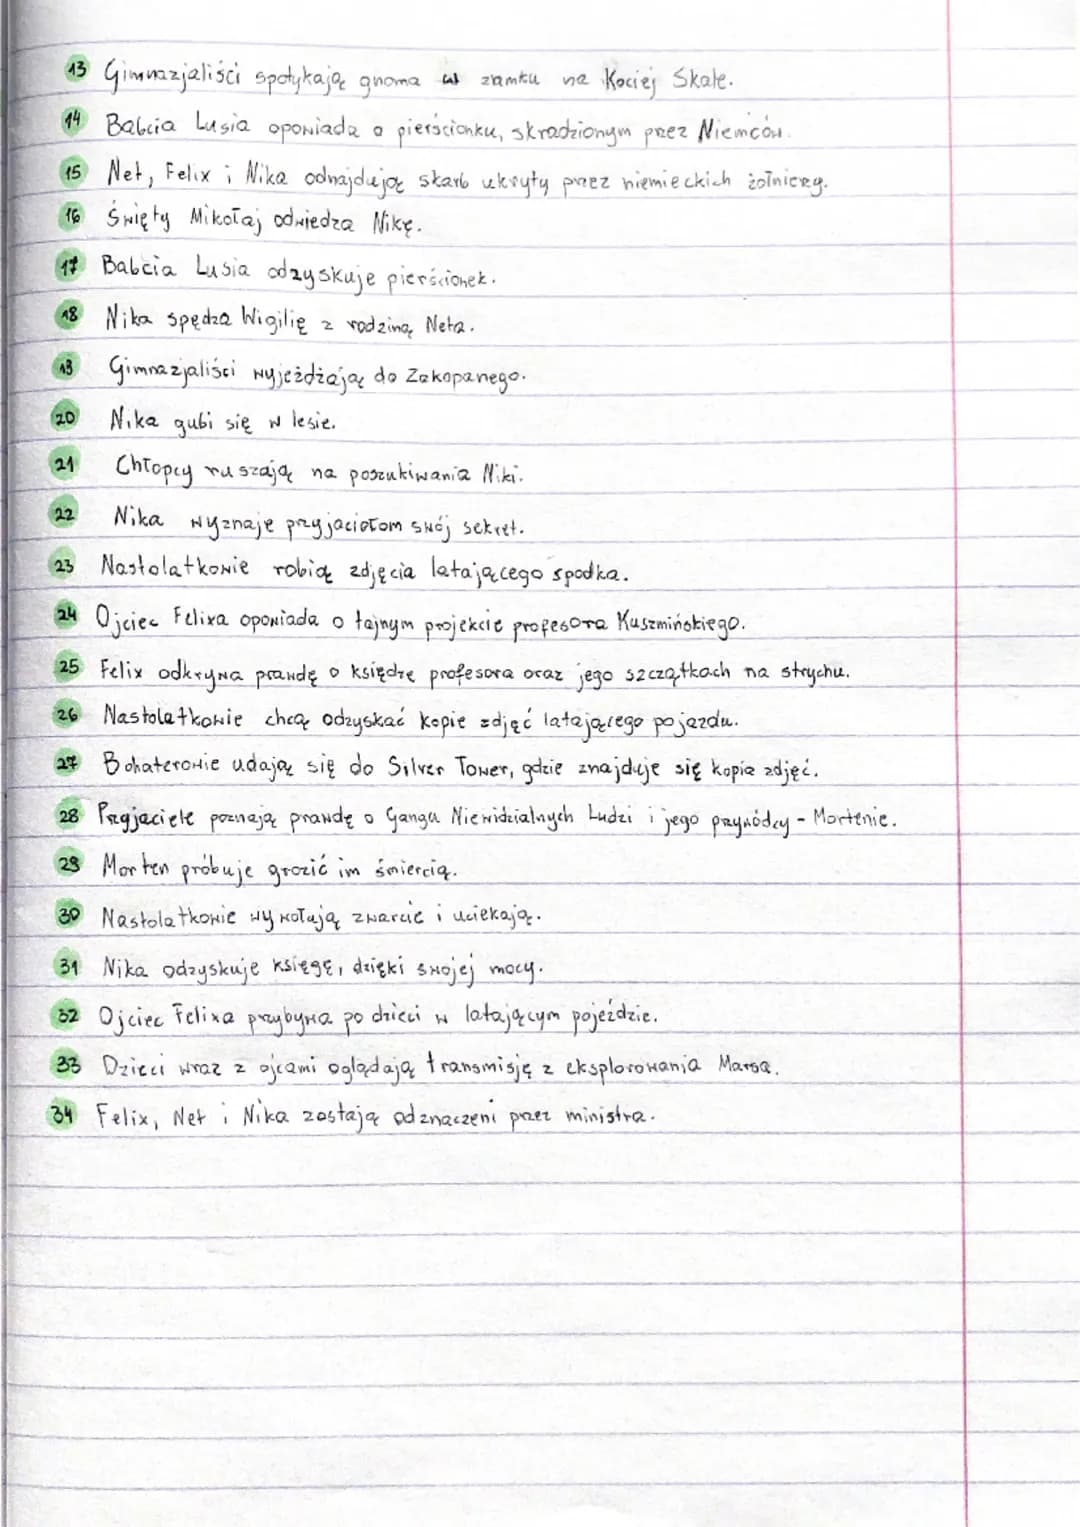 13 Gimnazjaliści spotykają gnoma w zamku na Kociej Skale.
14 Babcia Lusia opowiada o pierścionku, skradzionym przez Niemców.
15 Net, Felix i Nika odnajdują skarb ukryty przez niemieckich żołnierzy.
16 Święty Mikołaj odwiedza Nikę.
17 Babcia Lusia odzyskuje pierścionek.
18 Nika spędza Wigilię z rodziną Neta.
19 Gimnazjaliści wyjeżdżają do Zakopanego.
20 Nika gubi się w lesie.
21 Chłopcy ruszają na poszukiwania Niki.
22 Nika wyznaje przyjaciołom swój sekret.
23 Nastolatkowie robią zdjęcia latającego spodka.
24 Ojciec Felixa opowiada o tajnym projekcie profesora Kuszmińskiego.
25 Felix odkrywa prawdę o księdze profesora oraz jego szczątkach na strychu.
26 Nastolatkowie chcą odzyskać kopie zdjęć latającego pojazdu.
27 Bohaterowie udają się do Silver Tower, gdzie znajduje się kopia zdjęć.
28 Przyjaciele poznają prawdę o Gangu Niewidzialnych Ludzi i jego przywódcy - Mortenie.
29 Morten próbuje grozić im śmiercią.
30 Nastolatkowie wywołują zwarcie i uciekają.
31 Nika odzyskuje księgę, dzięki swojej mocy.
32 Ojciec Felixa przybywa po dzieci w latającym pojeździe.
33 Dzieci wraz z ojcami oglądają transmisję z eksplorowania Marsa.
34 Felix, Net i Nika zostają odznaczeni przez ministra.